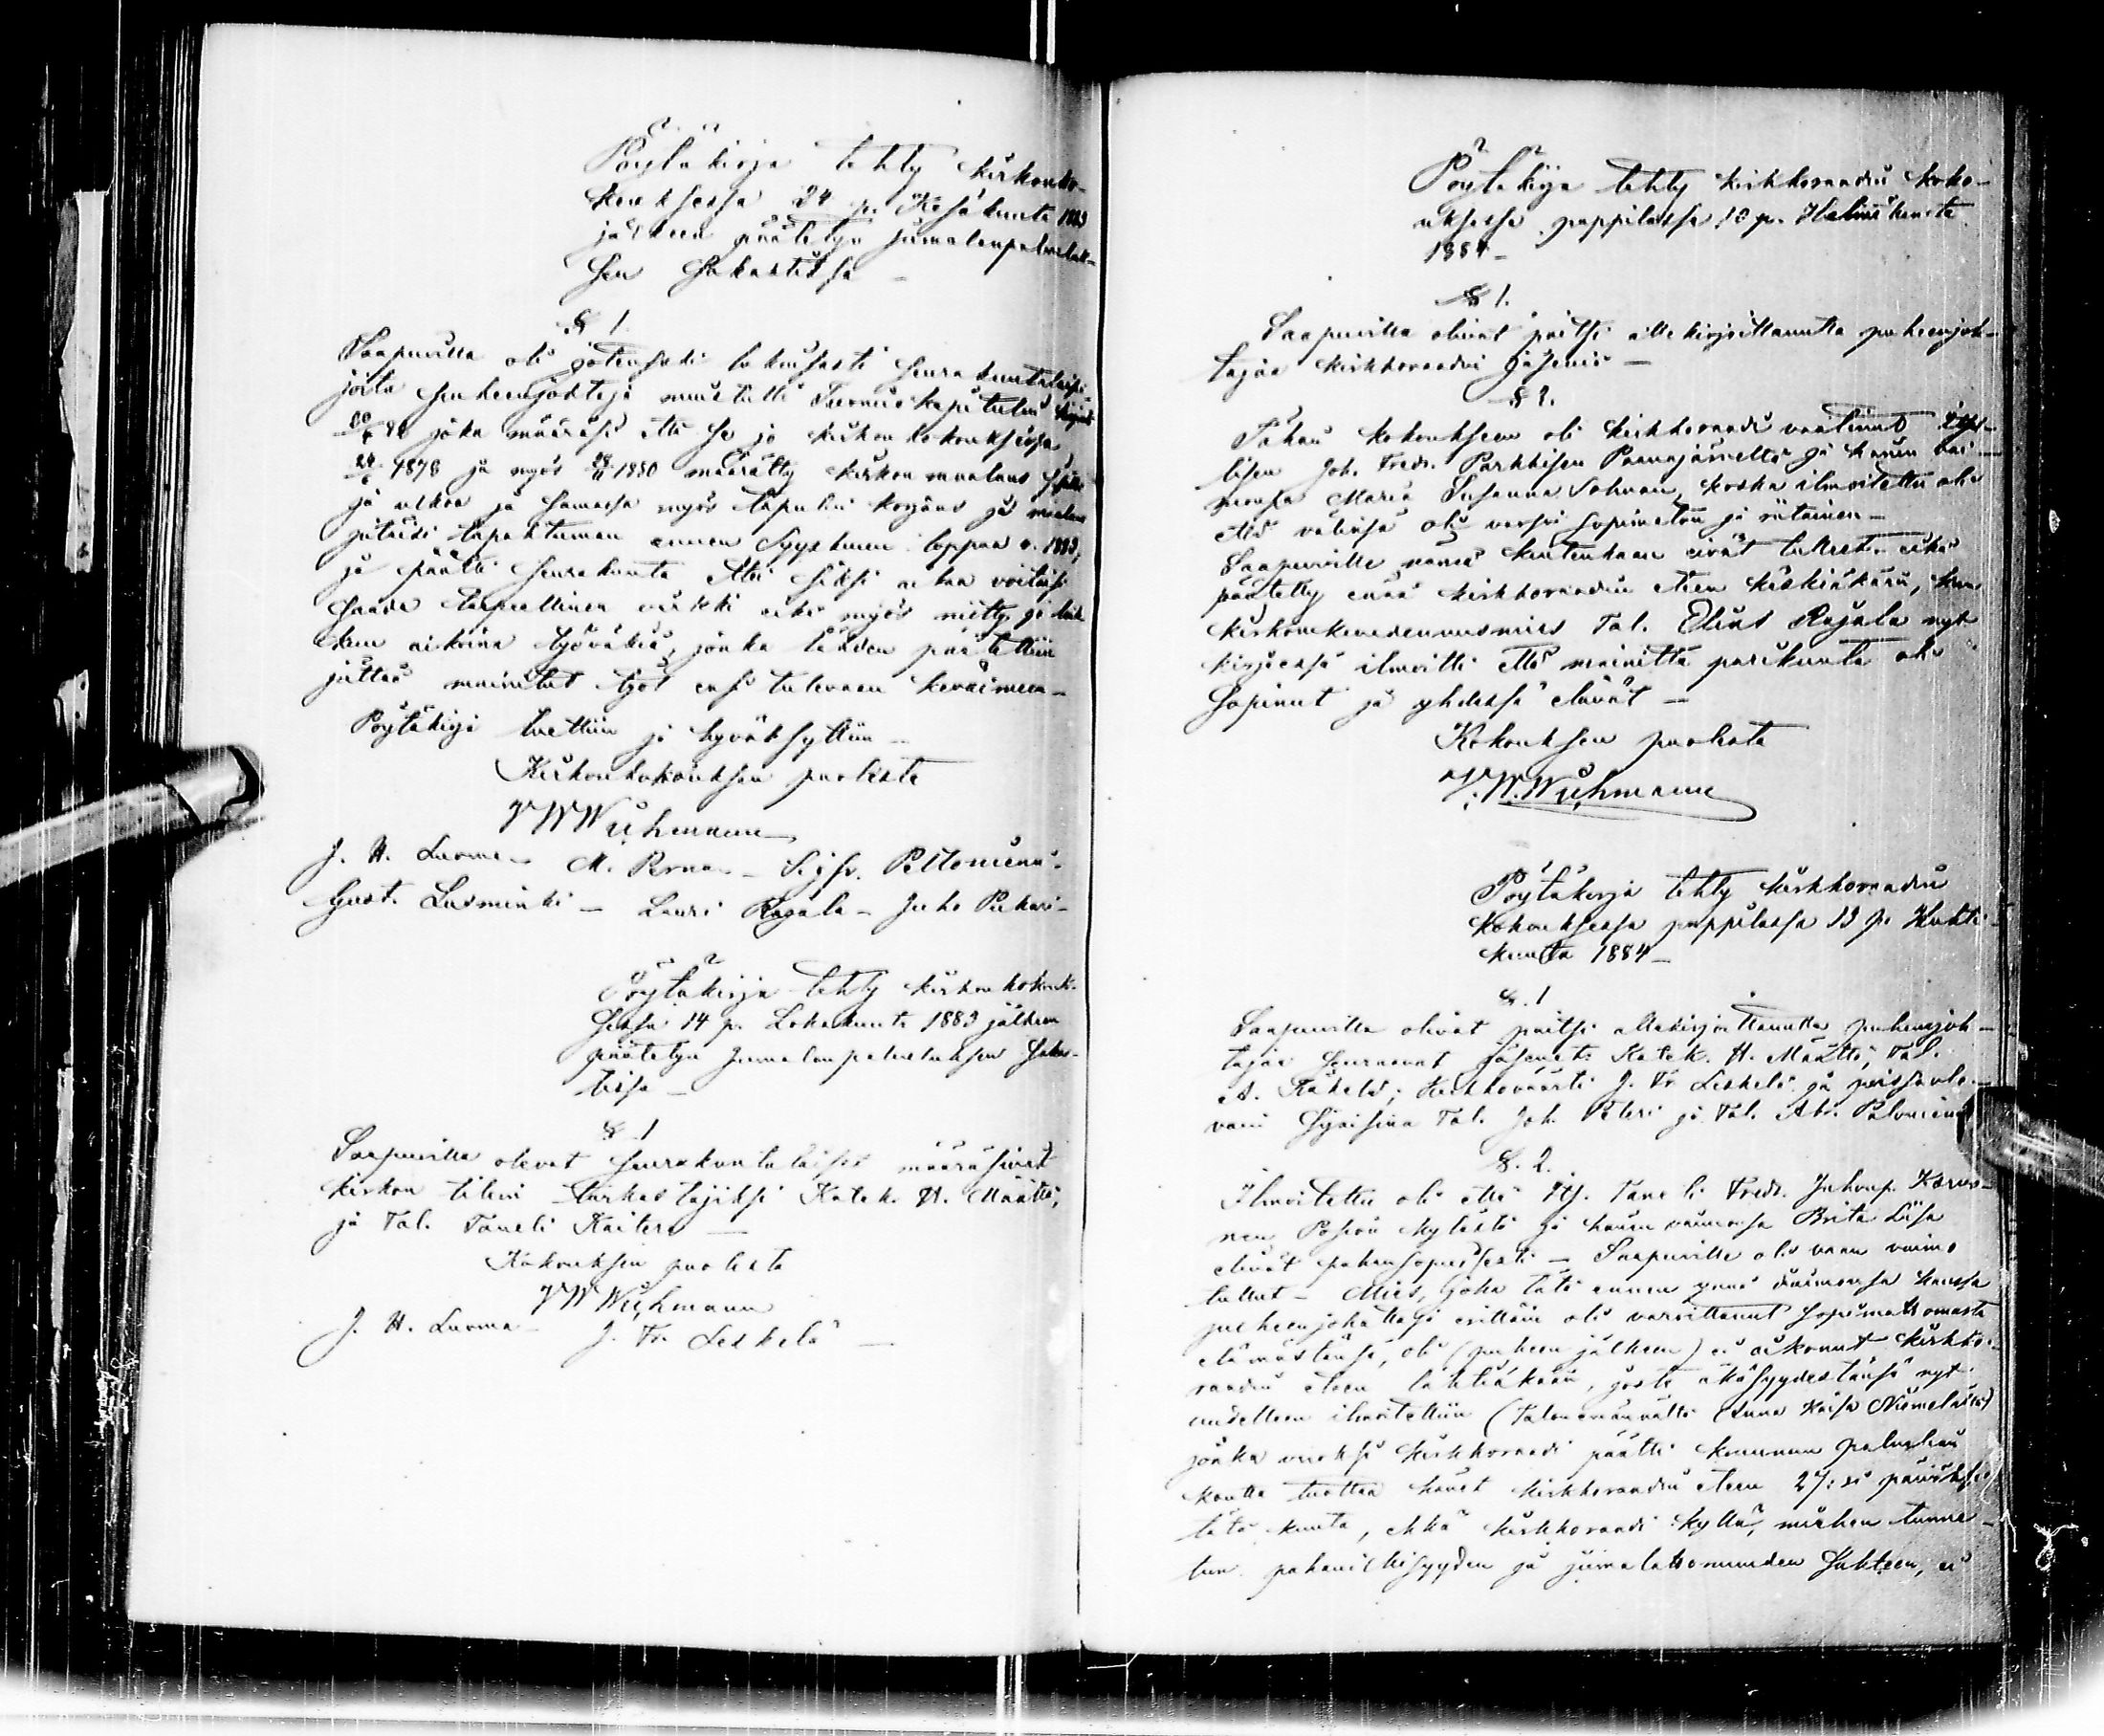 Pöytäkirja tehty kirkonko-
kouksessa 24 p. Kesäkuuta 1883
jälkeen päätetyn jumalanpalveluk-
sen Sakastissa -
§ 1.
Saapuvilla oli jotensaki lukuisasti seurakuntalaisi-
joita puheenjohtaja muistutti Tuomiokapitulin
82 joka määräsi että se jo kirkonkokouksissa
1878 ja myös 1880 määrätty kirkon maalaus sisältä
ja ulkoa ja samassa myös tapulin korjaus ja maalaus
pitäisi tapahtuman ennen Syyskuun loppua v. 1883,
ja päätti seurakunta ettei siksi aikaa voitaisi
saada tarpeellinen värkki eikä myös niitty ja
kuun aikoina työväkiä, jonka tähden päätettiin
jättää mainitut työt ensi tulevaan kevääseen -
Pöytäkirja luettiin ja hyväksyttiin -
Kirkonkokouksen puolesta
J W Wichmann
J. H. Luoma - M. Perna - Sigfr. Peltoniemi -
Gust. Lusminki - Lauri Rajala - Juho Pekari -
Pöytäkirja tehty kirkonkokouk-
sessa 14 p. Lokakuuta 1883 jälkeen
päätetyn jumalanpalveluksen Sakas-
tissa -
§. 1
Saapuvilla olevat seurakuntalaiset määräsivät
kirkon tilein tarkastajiksi Katek. H. Määttä,
ja Tal. Taneli Kaitera -
Kokouksen puolesta
J W Wichmann
J. H. Luoma - J. Fr. Leskelä -
Pöytäkirja tehty kirkkoraadin koko-
uksessa pappilassa 10 p. Helmikuuta
1884 -
§ 1.
Saapuvilla olivat paitsi allekirjoittanutta puheenjoh-
tajaa kirkkoraadin jäseniä -
§ 2.
Tähän kokoukseen oli kirkkoraadi vaatinut
lisen Joh. Fredr. Parkkisen Paanajärveltä ja hänen vai-
monsa Maria Susanna Sohvan, koska ilmoitettu oli
että välinsä oli varsin sopimaton ja riitainen -
Saapuville nämä kuitenkaan eivät tulleet. eikä
päätetty enää kirkkoraadin eteen käskiäkään, kun
kirkonkuudennusmies Tal. Elias Rajala nyt
kirjeessä ilmoitti että mainittu parikunta oli
sopinut ja yhdessä elävät -
Kokouksen puolesta
J. W. Wichmann
Pöytäkirja tehty kirkkoraadin
kokouksessa pappilassa 13 p. Huhti-
kuuta 1884 -
§. 1
Saapuvilla olivat paitsi allekirjoittanutta puheenjoh-
tajaa seuraavat jäsenet: Katek. H. Määttä, Tal.
A. Käkelä; Kirkkoväärti J. Fr. Leskelä ja poissaole-
vain sijaisina Tal. Joh. Peteri ja Tal. Abr. Paloniemi
§. 2.
Ilmoitettu oli että Itj. Taneli Fredr. Juhonp. Karva-
nen Posion kylästä ja hänen vaimonsa Brita Liisa
elivät pahansopuisesti - Saapuville oli vaan vaimo
tullut - Mies, joka tätä ennen ynnä vaimonsa kanssa
puheenjohtajalta erittäin oli varoittanut sopimattomasta
elämästänsä, oli (puheen jälkeen) ei aikonut kirkko-
raadin eteen lähteäkään, josta äkäisyydestänsä nyt
uudelleen ilmoitettiin (Talon emännältä Anna Kaisa Niemelältä)
jonka vuoksi kirkkoraadi päätti kruunun palvelian
kautta tuottaa hänet kirkkoraadin eteen 27:si päiväksi
tätä kuuta, ehkä kirkkoraadi kyllä, miehen tunne-
tun pahanilkisyyden ja jumalattomuuden suhteen, ei